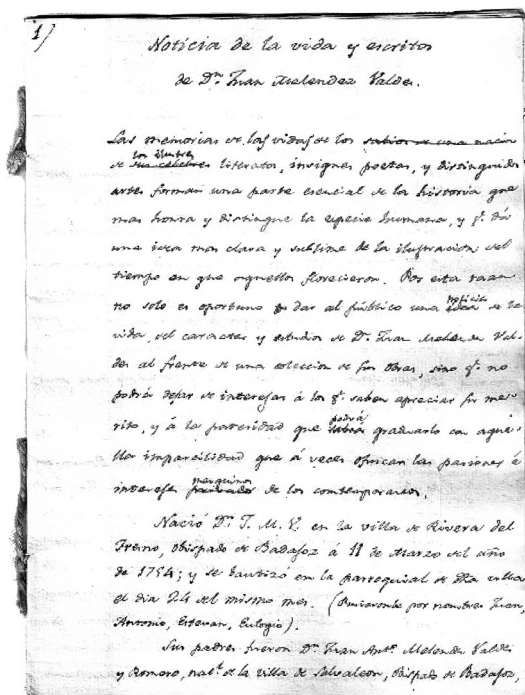 1)
Noticia de la vida y escritos
de Dⁿ. Juan Melendez Valdes.
Las memorias de las vidas de los sabios de una nacion
los ilustres
de sus celebres literatos, insignes poetas, y distinguidos
artes forman una parte esencial de la historia que
mas honra y distingue la especie humana, y qᵉ. dá
una idea mas clara y sublime de la ilustracion del
tiempo en que aquellos florecieron. Por esta razon
noticia
no solo es oportuno dar al público una idea de la
vida, del caracter y estudios de Dⁿ. Juan Melendez Val-
des al frente de una coleccion de sus obras, sino qᵉ. no
podrá dejar de interesar á los qᵉ. saben apreciar su me-
podrá
rito, y á la posteridad que sabrá graduarlo con aque-
lla imparcilidad que á veces ofuscan las pasiones é
mezquinos
intereses de los comtemporaneos.
Nació Dⁿ. J. M. V. en la villa de Rivera del
Fresno, obispado de Badajoz á 11 de Marzo del año
de 1754; y se bautizó em la parroquial de dha villa
el dia 24 del mismo mes. (Pusieronle por nombres Juan,
Antonio, Estevan, Eulogio).
Sus padres fueron Dⁿ. Juan Antº. Melendez Valdes
y Romero, natˡ. de la villa de Salvaleon, Obispado de Badajoz,